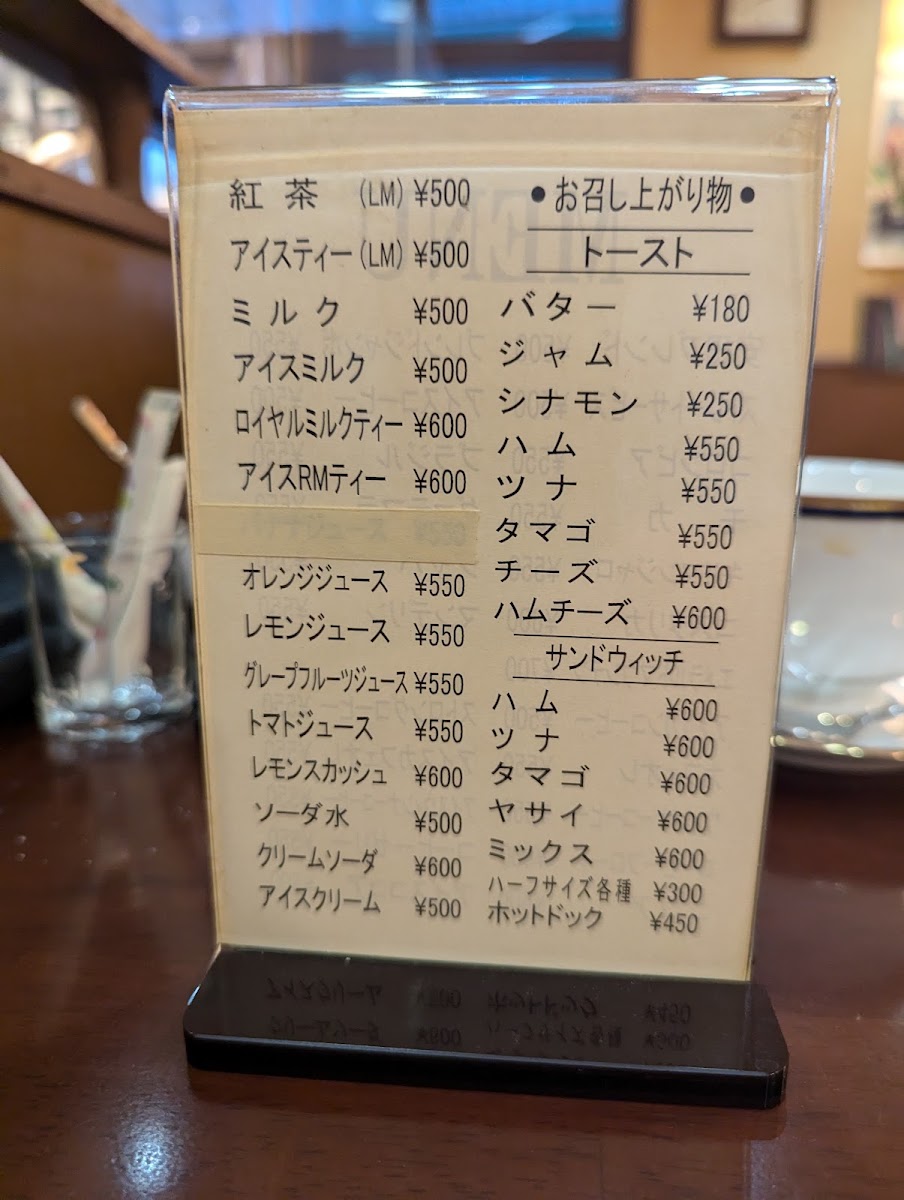 紅茶 (LM) ¥500
アイスティー (LM) ¥500
ミルク ¥500
アイスミルク ¥500
ロイヤルミルクティー ¥600
アイスRMティー ¥600
オレンジジュース ¥550
レモンジュース ¥550
グレープフルーツジュース ¥550
トマトジュース ¥550
レモンスカッシュ ¥600
ソーダ水 ¥500
クリームソーダ ¥600
アイスクリーム ¥500
●お召し上がり物●
トースト
バター ¥180
ジャム ¥250
シナモン ¥250
ハム ¥550
ツナ ¥550
タマゴ ¥550
チーズ ¥550
ハムチーズ ¥600
サンドウィッチ
ハム ¥600
ツナ ¥600
タマゴ ¥600
ヤサイ ¥600
ミックス ¥600
ハーフサイズ各種 ¥300
ホットドック ¥450